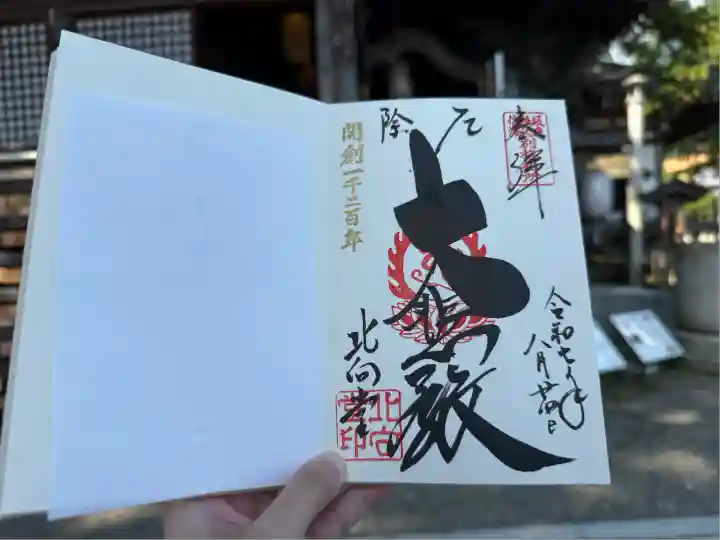 奉拝
令和七年
八月廿四日
厄除
大悲殿
開創一千二百年
北向堂
北向堂印